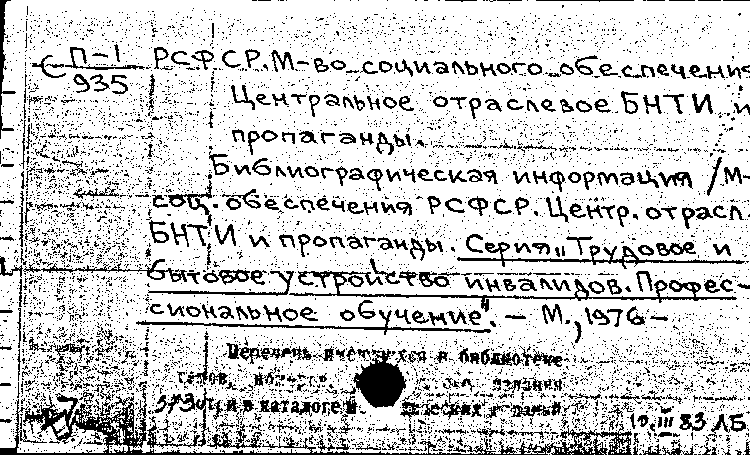 С П-1 РСФСР. М-во социального обеспечения
935
Центральное отраслевое БНТИ и
пропаганды.
Библиографическая информация /М-
соц. обеспечения РСФСР. Центр. отрасл
БНТИ и пропаганды. Серия „Трудовое и
бытовое устройство инвалидов. Профес-
сиональное обучение". – М., 1976 –
Перечень имеющихся в библиотеке
в каталоге
10.III 83 ЛБ